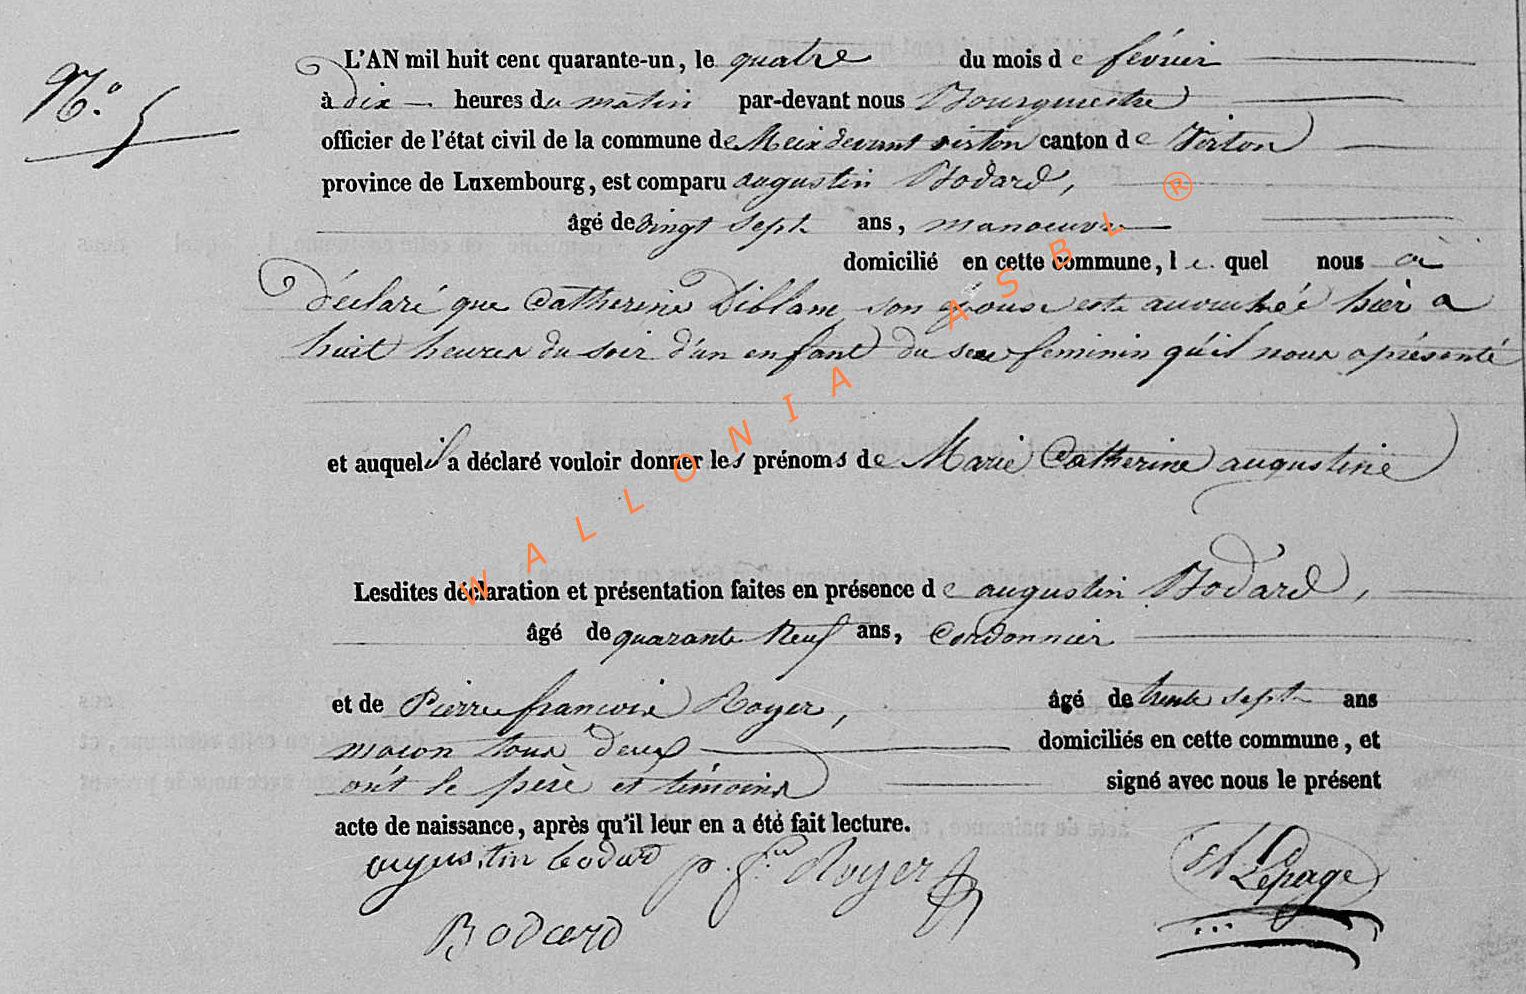 N.° 5
L'AN mil huit cent quarante-un, le quatre du mois de février
à dix heures du matin par-devant nous Bourguestre
officier de l'état civil de la commune de Meix devant virton canton de Virton
province de Luxembourg, est comparu augustin Bodard,
âgé de vingt sept ans, manoeuvre
domicilié en cette commune, le quel nous a
déclaré que Catherine Diblam son épouse est accouchée hier a
huit heures du soir d'un enfant du sexe feminin qu'il nous a présenté
et auquel il a déclaré vouloir donner les prénoms de Marie Catherine augustine
Lesdites déclaration et présentation faites en présence de augustin Bodard,
âgé de quarante Neuf ans, Cordonnier
et de Pierre francois Royer, âgé de trente sept ans
maçon tous deux domiciliés en cette commune, et
ont le père et témoins signé avec nous le présent
acte de naissance, après qu'il leur en a été fait lecture.
augustin bodard p. f. Royer Lepage
Bodard
WALLONIA ASBL ®